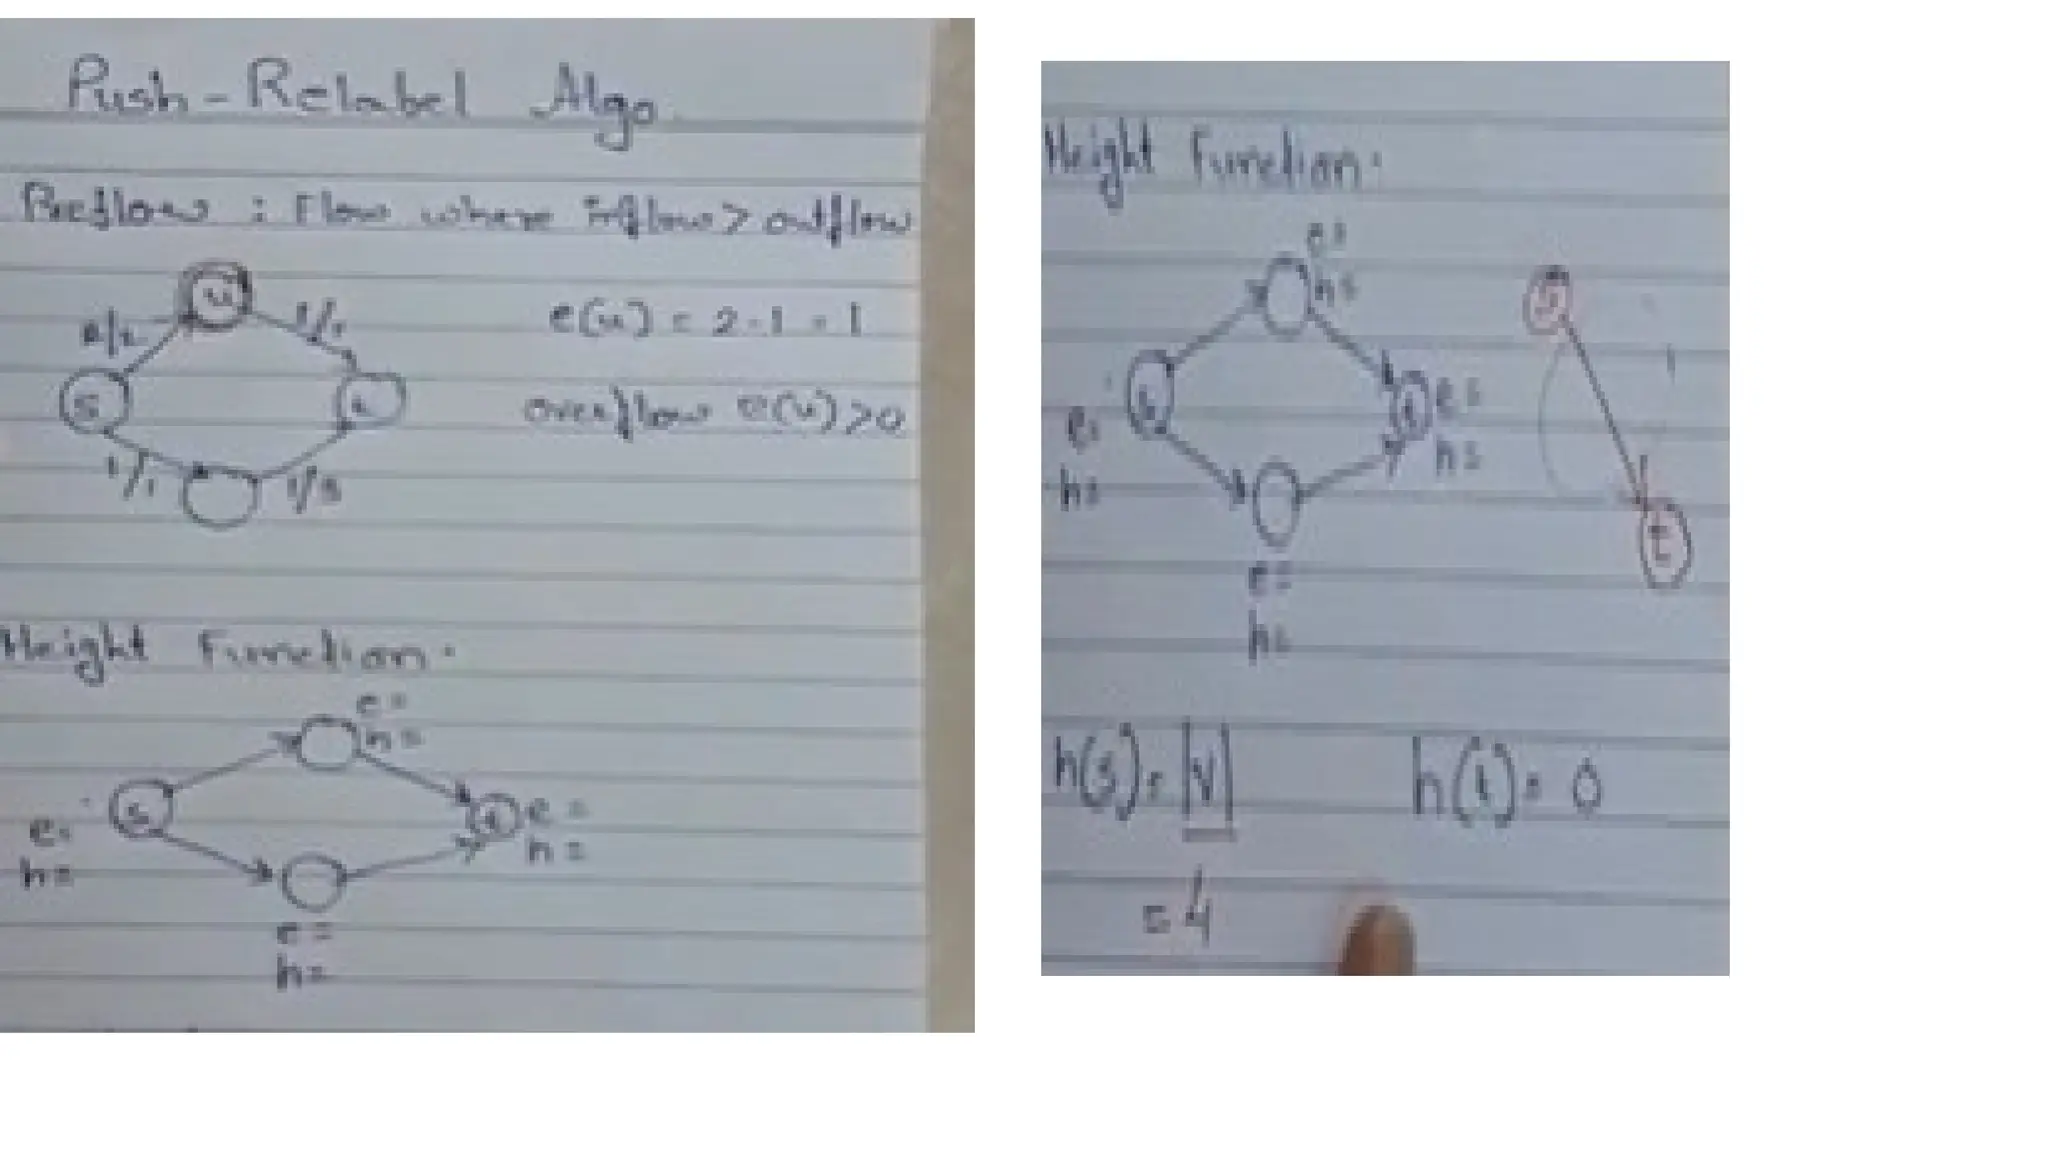 Push-Relabel Algo.
Preflow : Flow where inflow > outflow
u
2/2
1/1
e(u) = 2-1 = 1
s
t
overflow e(u)>0
1/1
1/3
Height Function.
e =
h =
s
t
e =
h =
e =
h =
e =
h =
Height Function.
e =
h =
s
t
e =
h =
e =
h =
e =
h =
s
t
h(s) = |V|
h(t) = 0
= 4